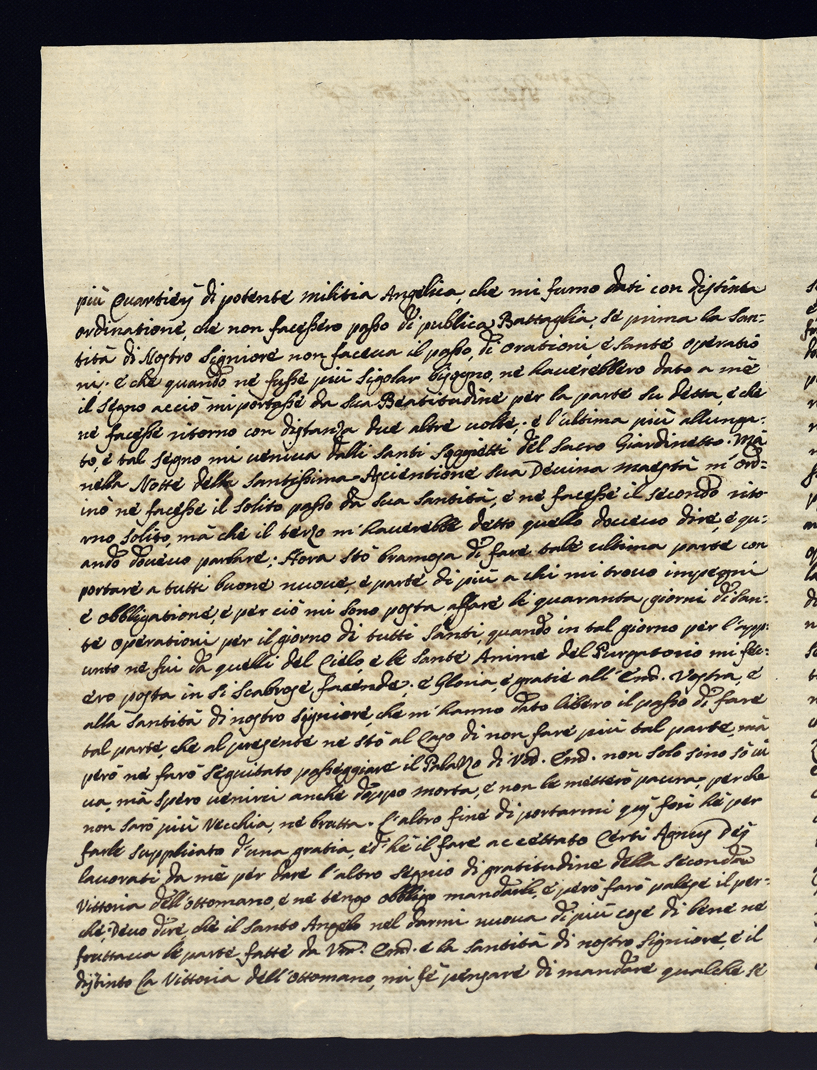 più Quartieri di potente militia Angelica, che mi furno dati con distinta
ordinatione, che non facessero passo di publica Battaglia, se prima la San:
tità di Nostro Signiore non faceua il passo, di orationi, e sante operatio
ni. e che quando ne fusse più sigolar bisogno, ne hauerebbero dato a me
il segno acciò mi portasse da sua Beatitudine per la parte su detta, e che
ne facesse ritorno con distanza due altre uolte. e l'ultima più allunga:
to, e tal segno mi ueniua dalli santi soggietti del sacro Giardinetto. Mà
nella Notte della santissima Ascientione sua Deuina maestà m'ord:
inò ne facesse il solito passo da sua santità, e ne facesse il secondo rito
rno solito, mà che il terzo m'hauerebbe detto quello doueuo dire, e qu:
ando doueuo parlare; Hora stò bramosa di fare tale ultima parte con
portare a tutti buone nuoue, e parte di più a chi mi trouo impegni
e obbligatione, e per ciò mi sono posta affare le quaranta giorni di san:
te operationi per il giorno di tutti santi, quando in tal giorno per l'app:
unto ne fui da quelli del Cielo, e le sante Anime del Purgatorio mi fec:
ero posta in si scabrose facende. e Gloria, e gratie all' Em. Vostra, e
alla santità di nostro signiore, che m'hanno dato libero il passo di fare
tal parte, che al presente ne stò al Caso di non fare più tal parte, mà
però ne farò seguitato passeggiare il Palazzo di Em. non solo sino sò ui
ua, mà spero uenirci anche doppo morta, e non le metterò paura, perche
non sarò più Vecchia, ne brutta. l'altro fine di portarmi quì fori hè per
farle supplicato d'una gratia, ed' hè il fare accettato Certi Agnus Dei
lauorati da me per dare l'altro segnio di gratitudine della seconda
Vittoria dell'ottomano, e ne tengo obbligo mandarli, e però farò palese il per:
chè, Deuo dire, che il santo Angelo nel darmi nuoua di più cose di bene ne
fruttaua le parte fatte da Em. e la santità di nostro signiore, e il
distinto la Vittoria dell'ottomano, mi fè pensare di mandare qualche se